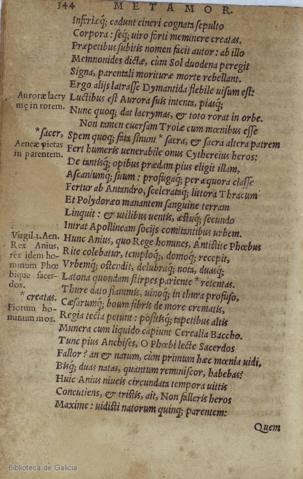 344 METAMOR.
Inferiæq; cedunt cineri cognata sepulto
Corpora: seq́; uiro forti meminere creatas.
Præpetibus subitis nomen facit autor: ab illo
Memnonides dictæ, cùm Sol duodena peregit
Signa, parentali morituræ morte rebellant.
Ergo alijs latrasse Dymantida flebile uisum est:
Auroræ lacry
mę in rorem.
Luctibus est Aurora suis intenta, piasq́;
Nunc quoq; dat lacrymas, & toto rorat in orbe.
Non tamen euersam Troiæ cum mœnibus esse
*sacer,
Aeneæ pietas
in parentem.
Spem quoq; fata sinunt *sacra, & sacra altera patrem
Fert humeris uenerabile onus Cythereius heros:
De tantisq́; opibus prædam pius eligit illam,
Ascaniumq́; suum: profugaq́; per æquora classe
Fertur ab Antandro, sceleratáq; littora Thracum
Et Polydoreo manantem sanguine terram
Linquit: & utilibus uentis, æstuq́; secundo
Intrat Apollineam socijs comitantibus urbem.
Virgil.3.Aen.
Rex Anius,
rex idem ho-
minum Phœ
bique sacer-
dos.
Hunc Anius, quo Rege homines, Antistite Phœbus
Rite colebatur, temploq́;, domoq́; recepit,
Vrbemq́; ostendit, delubraq́; nota, duasq́;
Latona quondam stirpes pariente * retentas.
*creatas.
Fiorum ho-
minum mos.
Thure dato flammis, uinoq́; in thura profuso,
Cæsarumq́; boum fibris de more crematis,
Regia tecta petunt: positiq́; tapetibus altis
Munera cum liquido capiunt Cerealia Baccho.
Tunc pius Anchises, O Phœbi lecte Sacerdos
Fallor? an & natum, cùm primum hæc mœnia uidi,
Bisq́; duas natas, quantum reminiscor, habebas?
Huic Anius niueis circundata tempora uittis
Concutiens, & tristis, ait, Non falleris heros
Maxime: uidisti natorum quinq; parentem:
Quem
Biblioteca de Galicia